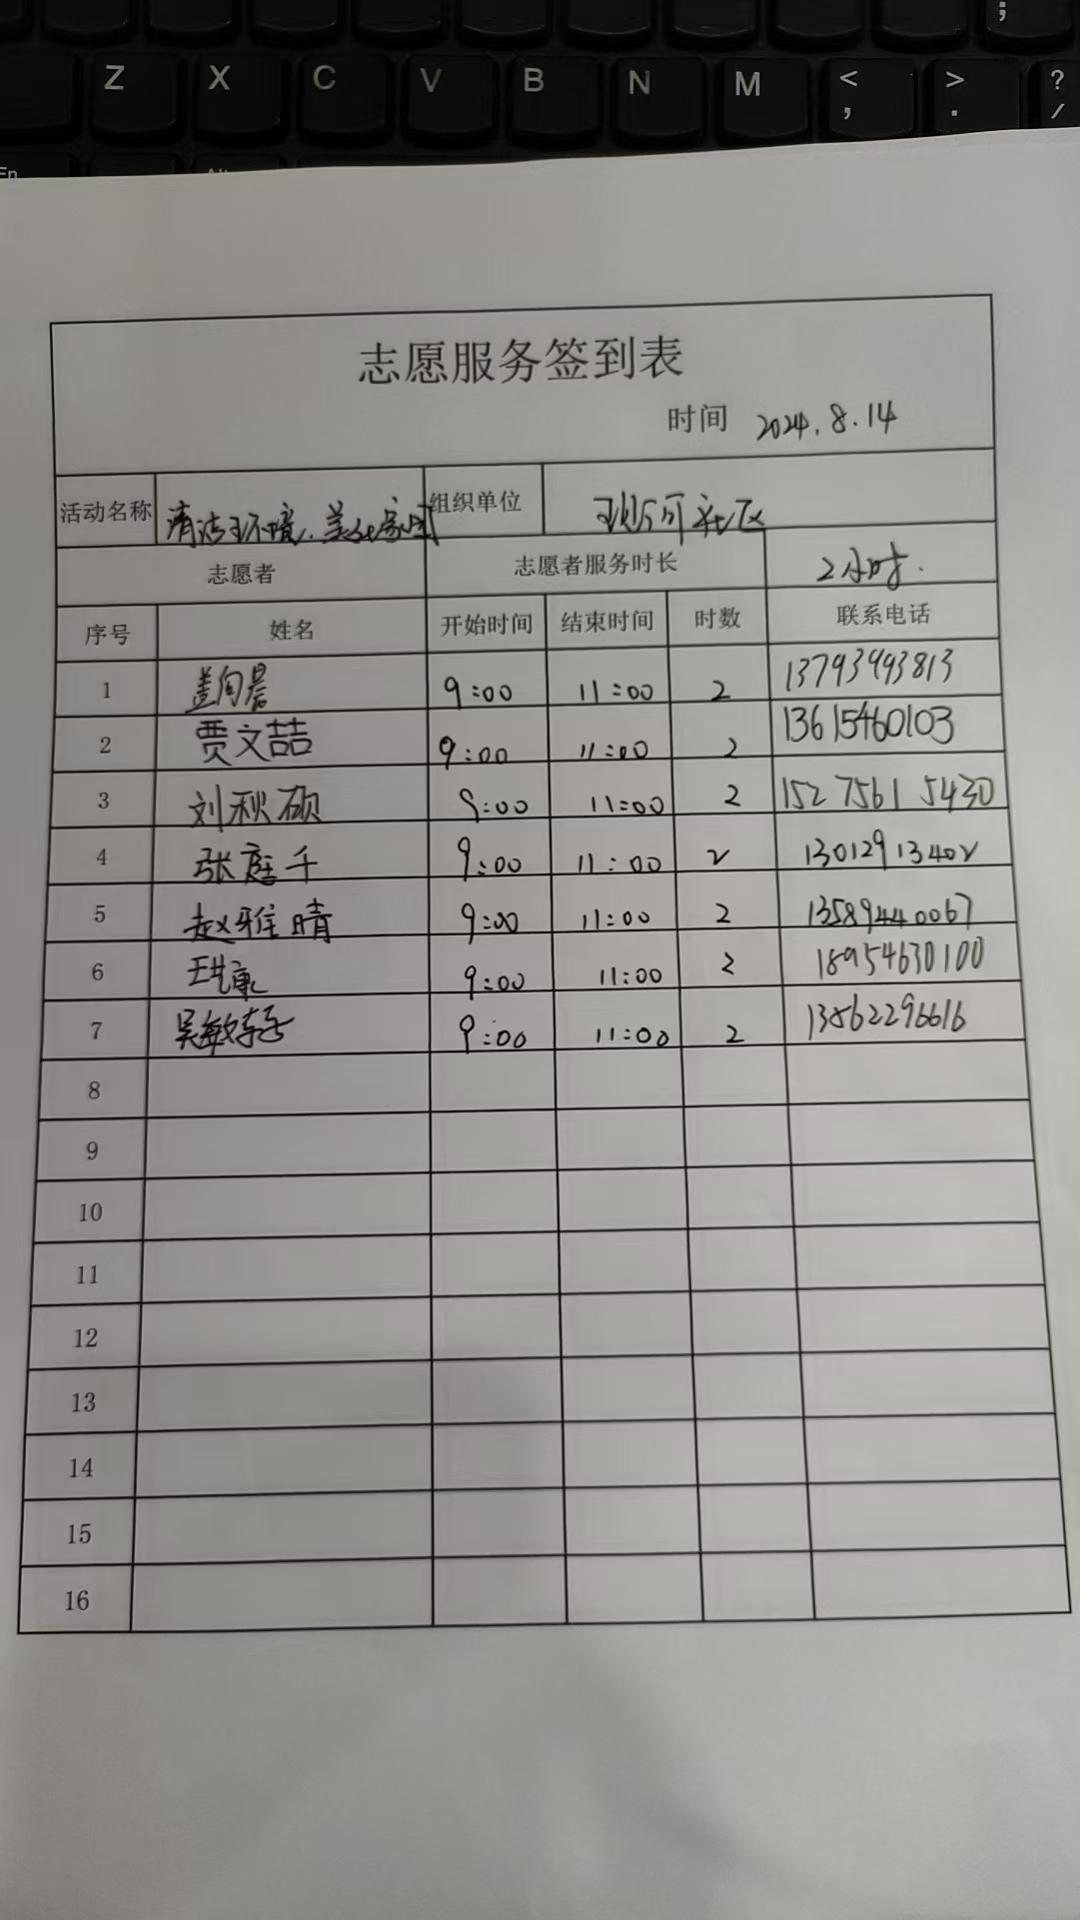 Z X C V B N M < , > . ? /
;
En Alt
志愿服务签到表
时间 2024.8.14
活动名称 清洁环境、美化家园 组织单位 社区
志愿者 志愿者服务时长 2小时.
序号 姓名 开始时间 结束时间 时数 联系电话
1 盖向晨 9:00 11:00 2 13793993813
2 贾文喆 9:00 11:00 2 13615460103
3 刘秋硕 9:00 11:00 2 152 7561 5430
4 张庭千 9:00 11:00 2 13012913402
5 赵雅晴 9:00 11:00 2 13589440067
6 9:00 11:00 2 18954630100
7 吴敏 9:00 11:00 2 13562296616
8
9
10
11
12
13
14
15
16